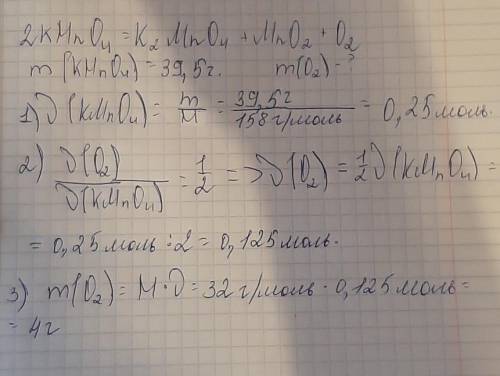 2KMnO₄ = K₂MnO₄ + MnO₂ + O₂
m(KMnO₄) = 39,5г. m(O₂) - ?
1) ν(KMnO₄) = m/M = 39,5г/158 г/моль = 0,25 моль.
2) ν(O₂)/ν(KMnO₄) = 1/2 => ν(O₂) = 1/2 ν(KMnO₄) =
= 0,25 моль : 2 = 0,125 моль.
3) m(O₂) = M · ν = 32 г/моль · 0,125 моль =
= 4г